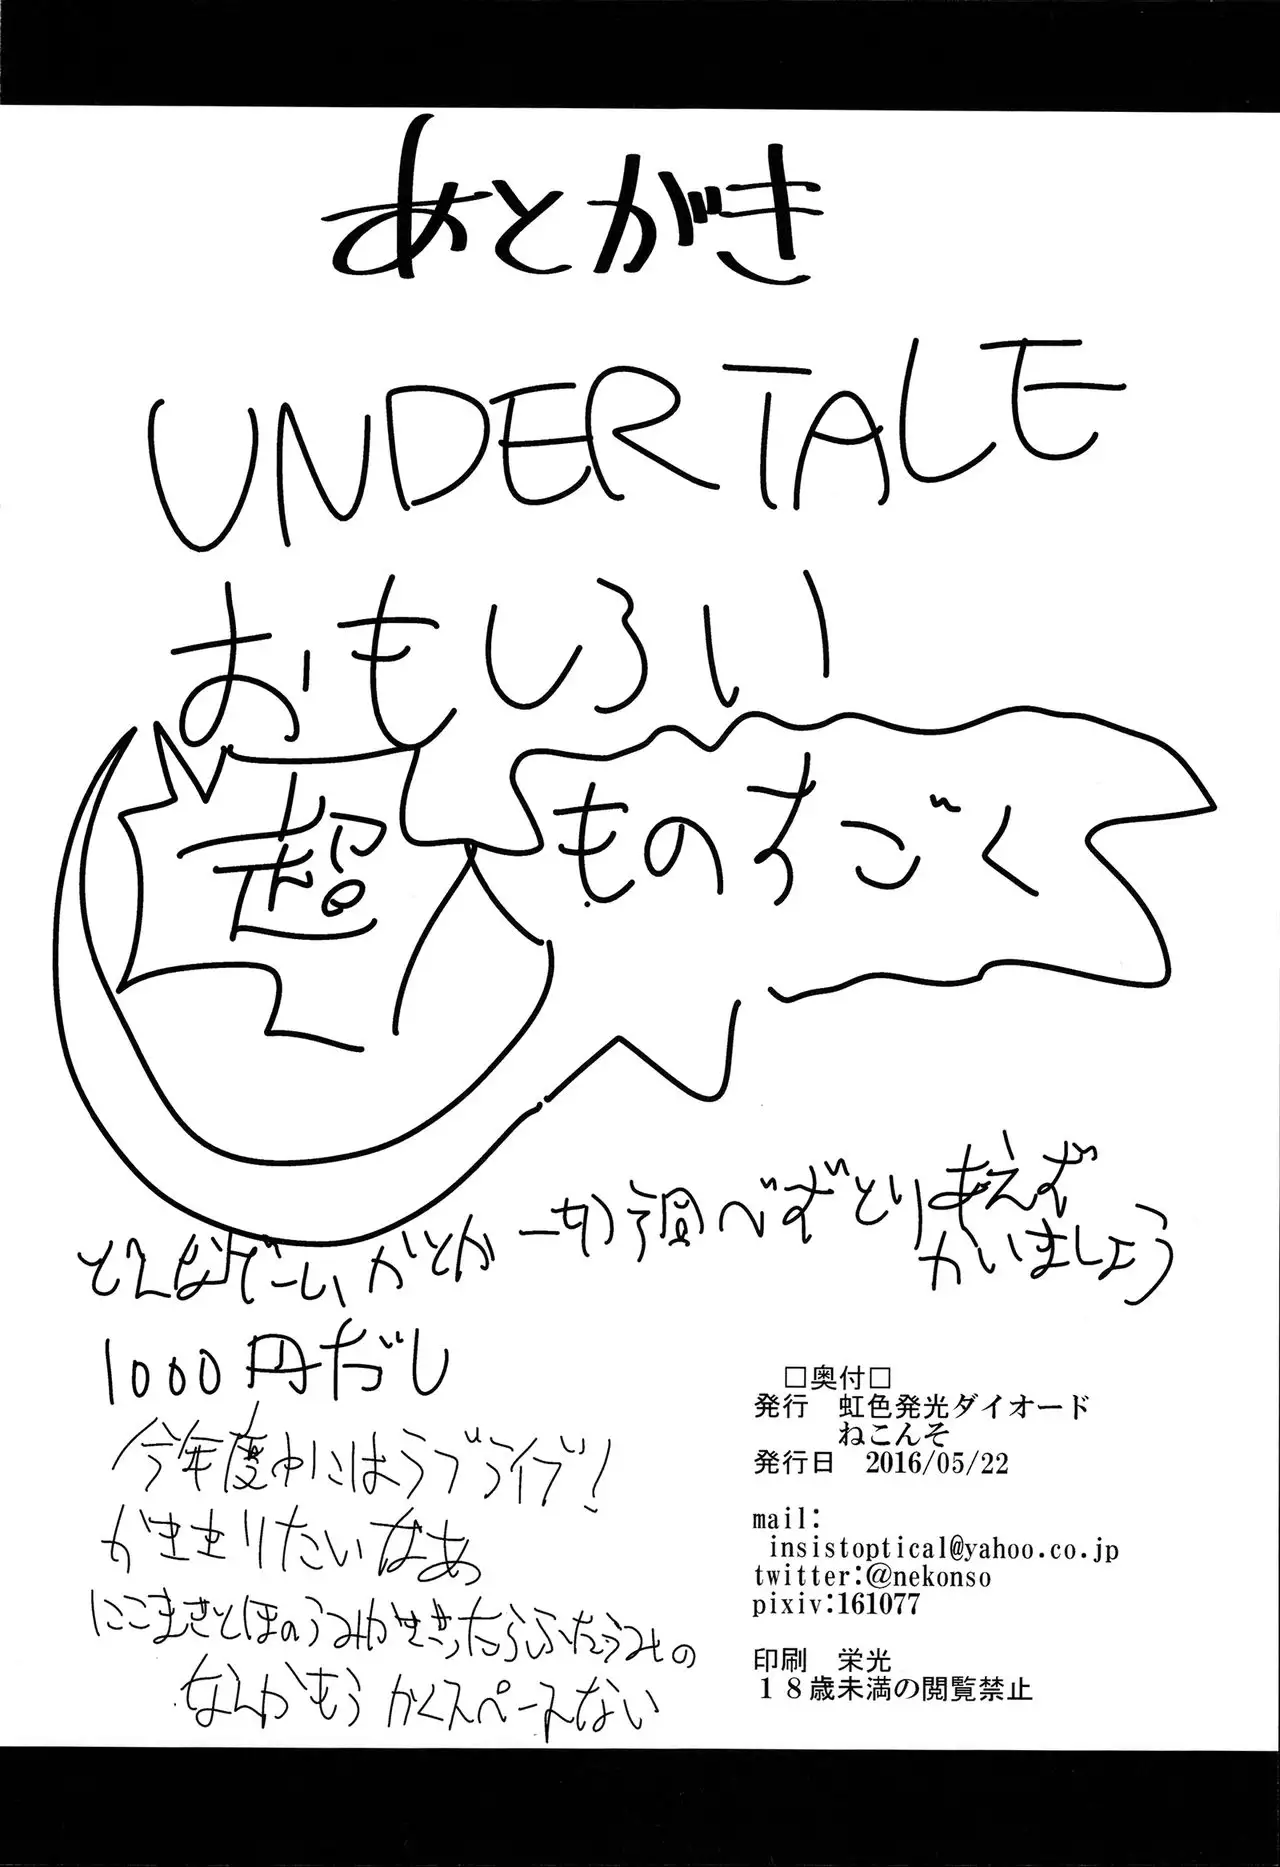 あとがき
UNDERTALE
おもしろい
超 ものすごく
どんなゲームかとか一切調べずとりあえず
かいましょう
1000円だし
今年度中にはラブライブ!
かききりたいなぁ
にこまきとほのうみがきたらふたうみの
なんかもうかくスペースない
□奥付□
発行　虹色発光ダイオード
ねこんそ
発行日　2016/05/22
mail:
insistoptical@yahoo.co.jp
twitter:@nekonso
pixiv:161077
印刷　栄光
18歳未満の閲覧禁止